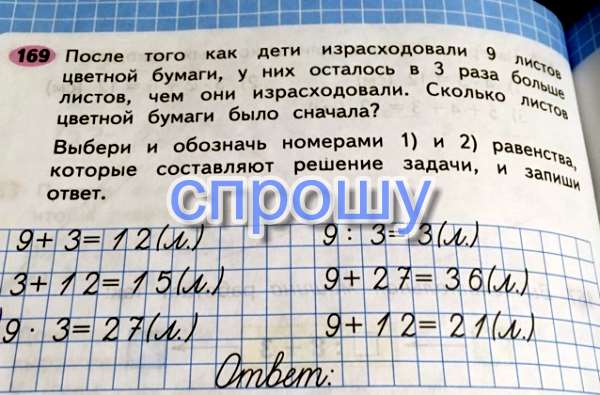 169 После того как дети израсходовали 9 листов
цветной бумаги, у них осталось в 3 раза больше
листов, чем они израсходовали. Сколько листов
цветной бумаги было сначала?
Выбери и обозначь номерами 1) и 2) равенства,
которые составляют решение задачи, и запиши
ответ.
спрошу
9 + 3 = 12 (л.) 9 : 3 = 3 (л.)
3 + 12 = 15 (л.) 9 + 27 = 36 (л.)
9 · 3 = 27 (л.) 9 + 12 = 21 (л.)
Ответ: